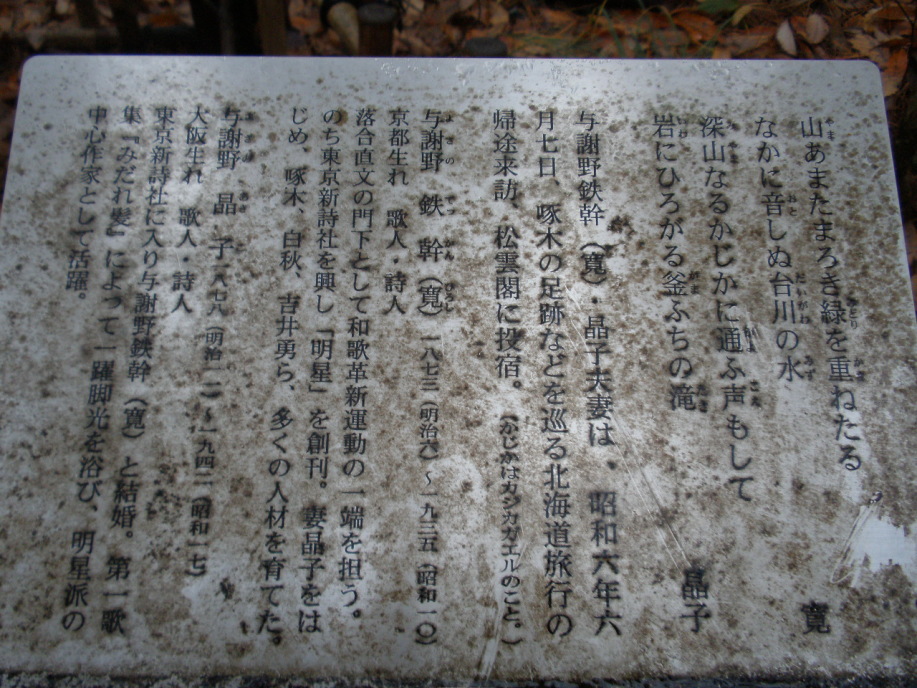 山あまたまろき緑を重ねたる
なかに音しぬ台川の水
寛
深山なるかじかに通ふ声もして
岩にひろかる釜ふちの滝
晶子
与謝野鉄幹(寛)・晶子夫妻は、昭和六年六
月七日、啄木の足跡などを巡る北海道旅行の
帰途来訪、松雲閣に投宿。(かじかはカジカガエルのこと。)
与謝野 鉄幹(寛)一八七三(明治六)~一九三五(昭和一〇)
京都生れ 歌人・詩人
落合直文の門下として和歌革新運動の一端を担う。
のち東京新詩社を興し「明星」を創刊。妻晶子をは
じめ、啄木、白秋、吉井勇ら、多くの人材を育てた。
与謝野 晶子 一八七八(明治一一)~一九四二(昭和一七)
大阪生れ 歌人・詩人
東京新詩社に入り与謝野鉄幹(寛)と結婚。第一歌
集『みだれ髪』によって一躍脚光を浴び、明星派の
中心作家として活躍。